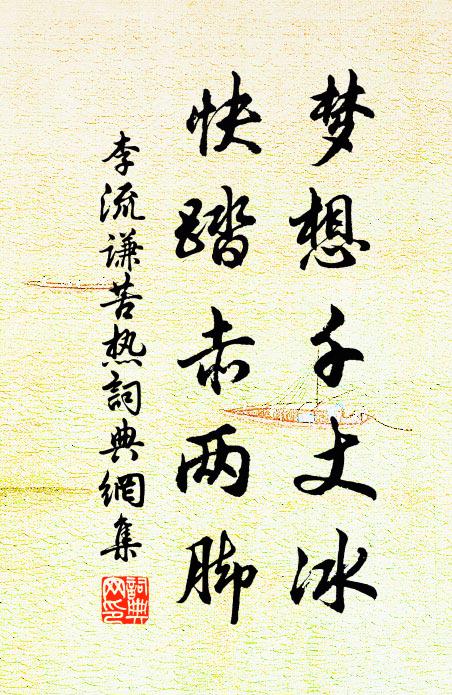 梦想千丈冰
快踏赤两脚
李流谦苦热词典網集
詞典网印